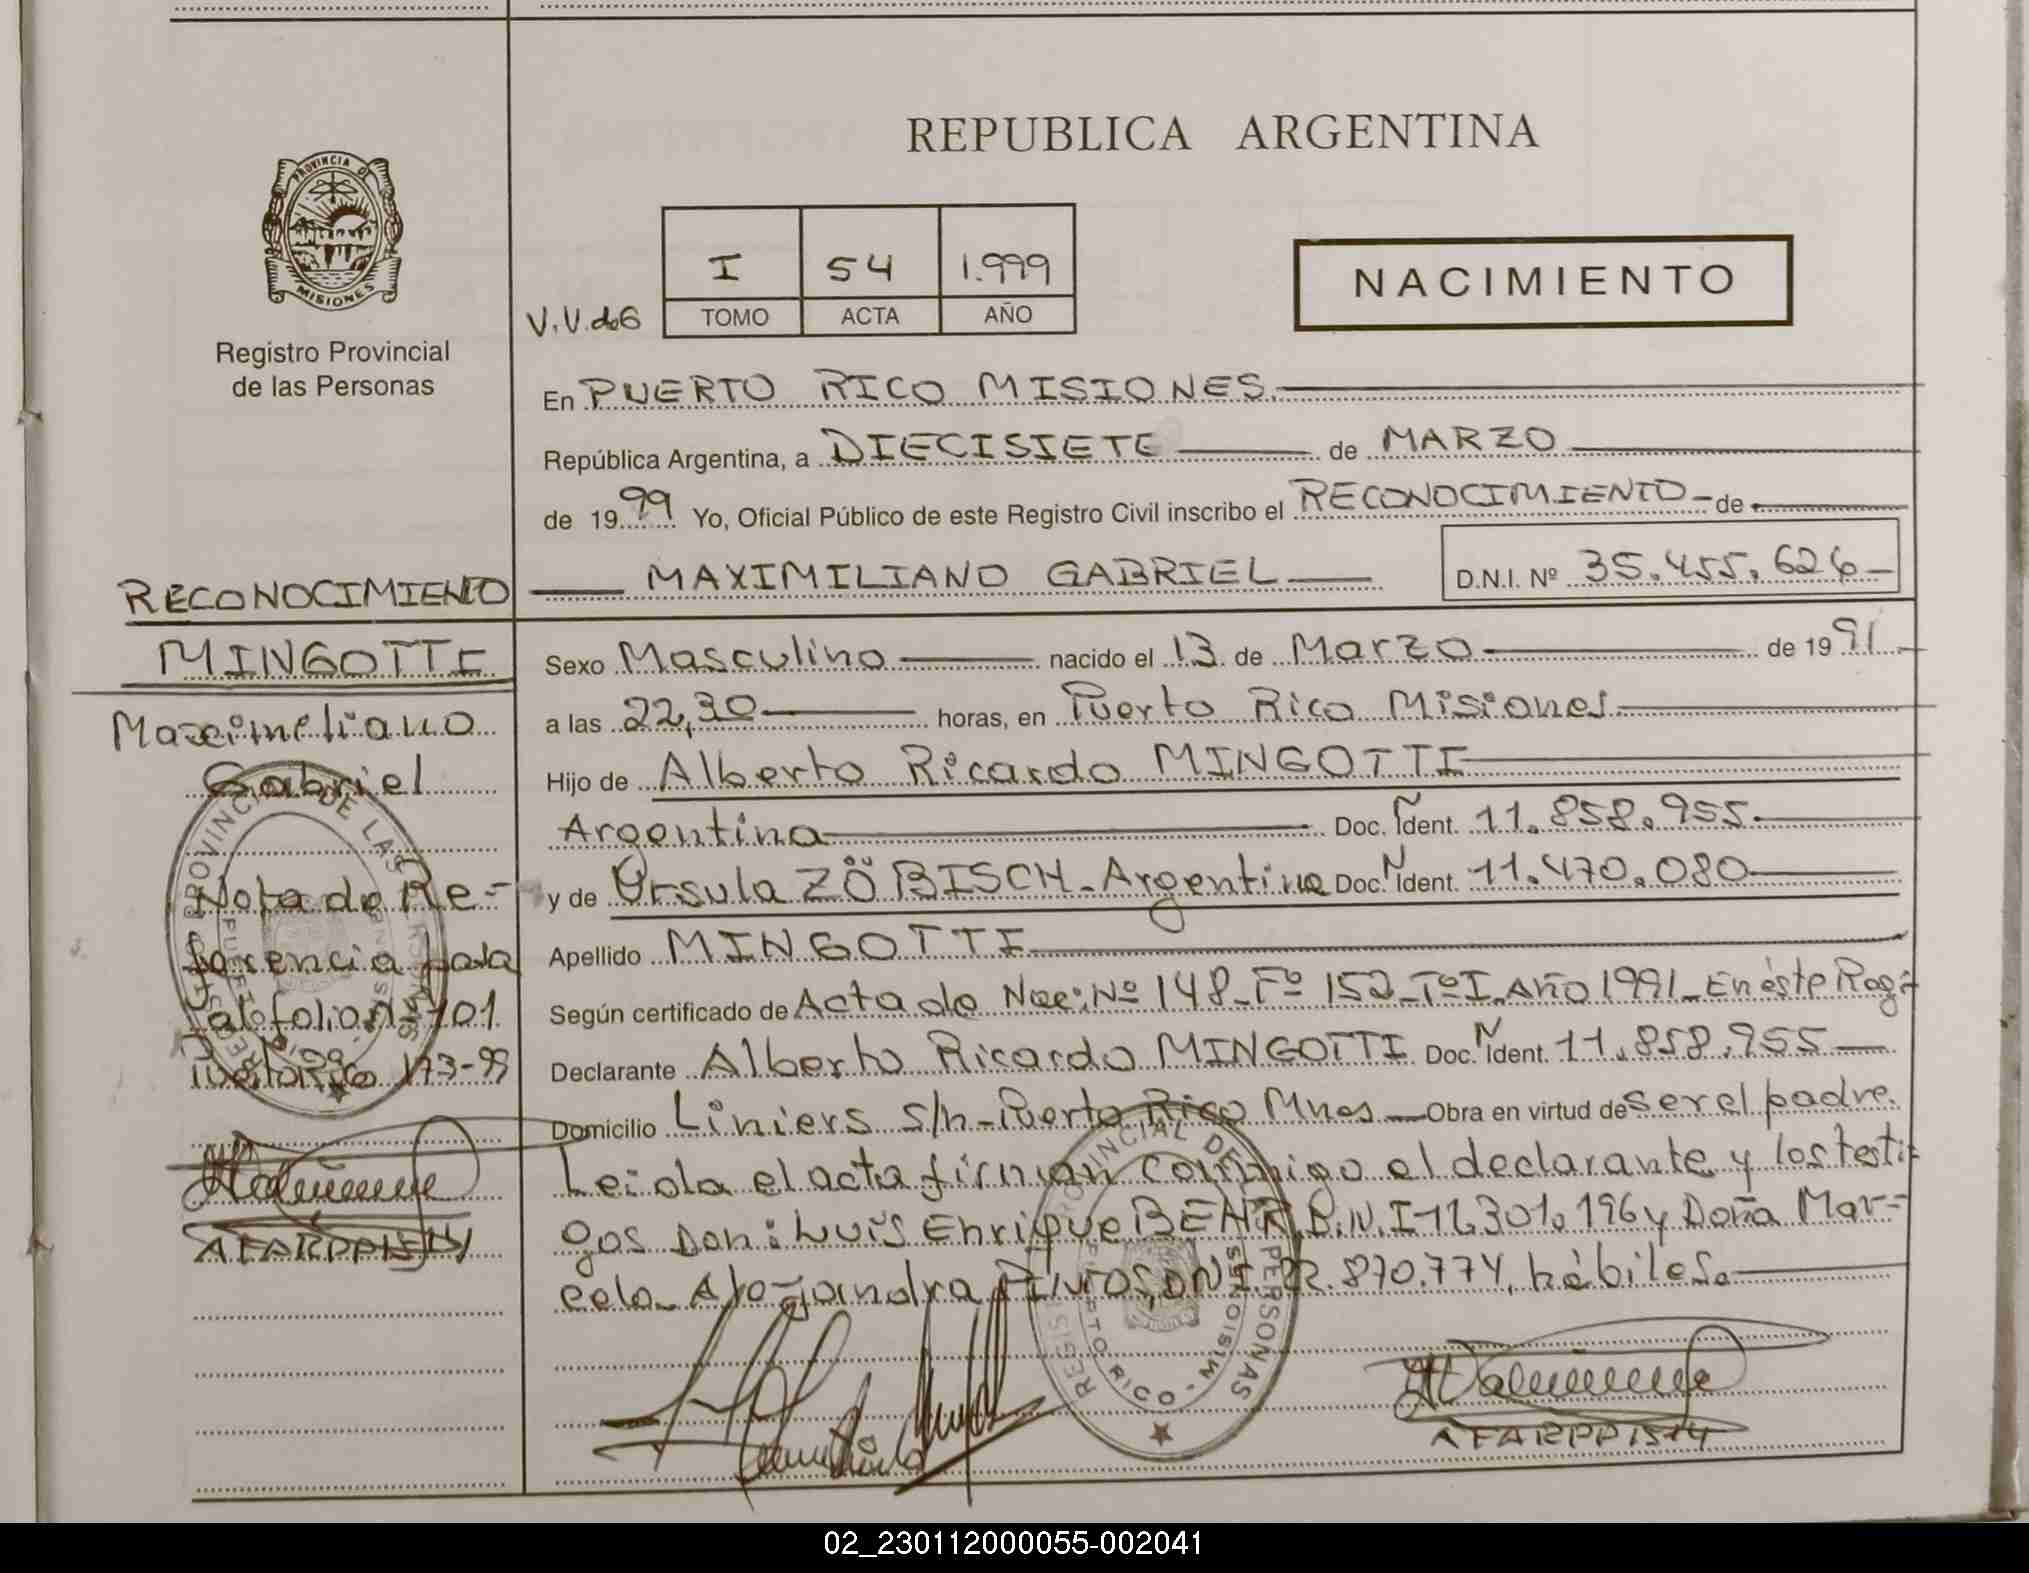 REPUBLICA ARGENTINA
PROVINCIA DE
MISIONES
Registro Provincial
de las Personas
V.V. de G
I 54 1.999
TOMO ACTA AÑO
NACIMIENTO
En PUERTO RICO MISIONES.
República Argentina, a DIECISIETE de MARZO
de 1999 Yo, Oficial Público de este Registro Civil inscribo el RECONOCIMIENTO - de
MAXIMILIANO GABRIEL
D.N.I. Nº 35.455.626
RECONOCIMIENTO
MINGOTTI
Maximiliano
Gabriel
Nota de Re=
ferencia
folio Nº 101
Puerto Rico 17-3-99
AFARPPISTY
Sexo Masculino nacido el 13 de Marzo de 1991
a las 22,30 horas, en Puerto Rico Misiones
Hijo de Alberto Ricardo MINGOTTI
Argentina Doc. N Ident. 11.858.955.
y de Ursula ZÖBISCH - Argentina Doc. N Ident. 11.470.080
Apellido MINGOTTI
Según certificado de Acta de Nac: Nº 148 - Fº 152 - Tº I - Año 1991 - En éste Reg=
Declarante Alberto Ricardo MINGOTTI Doc. N Ident. 11.858.955
Domicilio Liniers s/n - Puerto Rico Mnes Obra en virtud de ser el padre.
Leida el acta firman conmigo el declarante y los testi=
gos Don: Luis Enrique BEHR, D.N.I 11.301.196 y Doña Mar=
cela Alejandra DNI. 22.870.774, hábiles.
PROVINCIAL DE PERSONAS
PUERTO RICO - MISIONES
AFARPPISTY
02_230112000055-002041